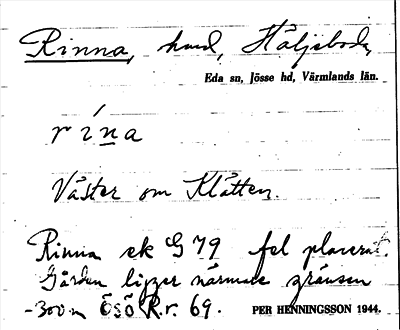 Rinna, hmd, Häljeboda,
Eda sn, Jösse hd, Värmlands län.
rína
Väster om Klätten.
Rinna ek G 79 fel placerat.
Gården ligger närmare gränsen
-300 m ÖSÖ R.r. 69. PER HENNINGSSON 1944.